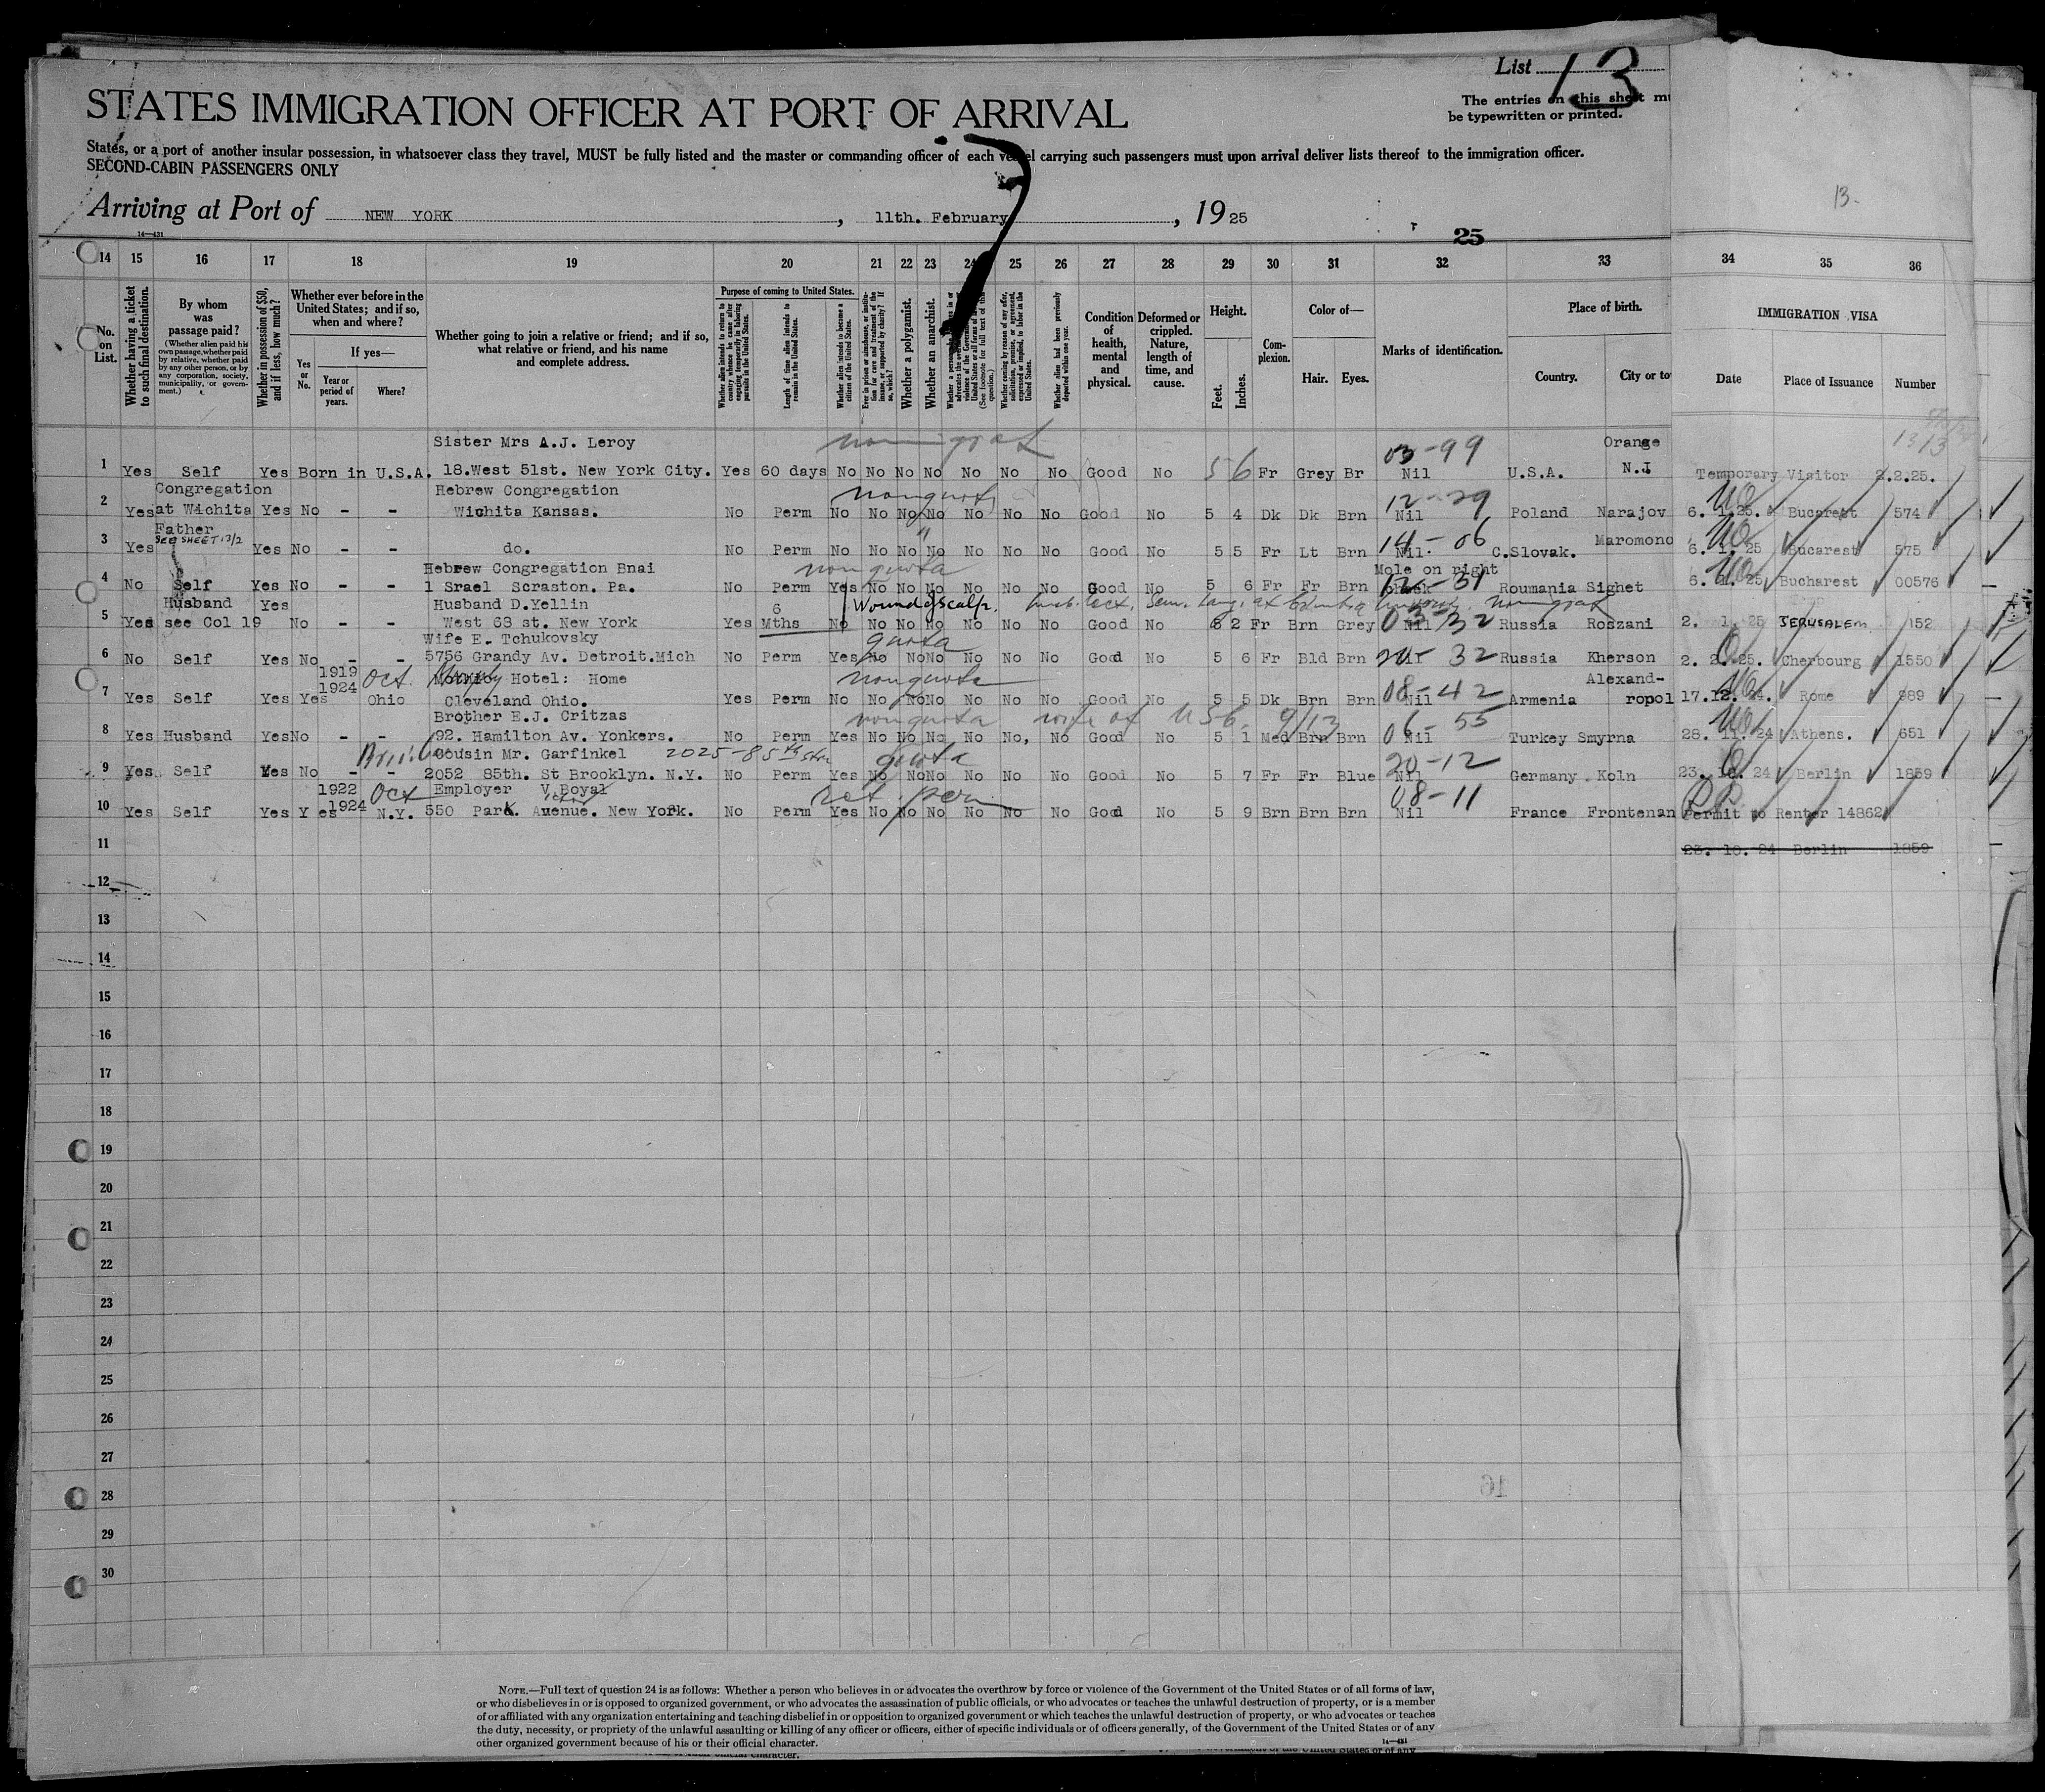 List 13
The entries on this sheet mu
be typewritten or printed.
STATES IMMIGRATION OFFICER AT PORT OF ARRIVAL
States, or a port of another insular possession, in whatsoever class they travel, MUST be fully listed and the master or commanding officer of each vessel carrying such passengers must upon arrival deliver lists thereof to the immigration officer.
SECOND-CABIN PASSENGERS ONLY
13.
Arriving at Port of NEW YORK, 11th. February, 1925
14—431
25
14 15 16 17 18 19 20 21 22 23 24 25 26 27 28 29 30 31 32 33 34 35 36
No. on List.
Whether having a ticket to such final destination.
By whom was passage paid?
(Whether alien paid his own passage, whether paid by relative, whether paid by any other person, or by any corporation, society, municipality, or government.)
Whether in possession of $50, and if less, how much?
Whether ever before in the United States; and if so, when and where?
Yes or No.
If yes—
Year or period of years.
Where?
Whether going to join a relative or friend; and if so, what relative or friend, and his name and complete address.
Purpose of coming to United States.
Whether alien intends to return to country whence he came after engaging temporarily in laboring pursuits in the United States.
Length of time alien intends to remain in the United States.
Whether alien intends to become a citizen of the United States.
Ever in prison or almshouse, or institution for care and treatment of the insane, or supported by charity? If so, which?
Whether a polygamist.
Whether an anarchist.
(See footnote for full text of this question.)
Whether coming by reason of any offer, solicitation, promise, or agreement, expressed or implied, to labor in the United States.
Whether alien had been previously deported within one year.
Condition of health, mental and physical.
Deformed or crippled. Nature, length of time, and cause.
Height.
Feet. Inches.
Complexion.
Color of—
Hair. Eyes.
Marks of identification.
Place of birth.
Country. City or to
IMMIGRATION VISA
Date Place of Issuance Number
Sister Mrs A.J. Leroy nonimgrat 03-99 Orange 1313
1 Yes Self Yes Born in U.S.A. 18.West 51st. New York City. Yes 60 days No No No No No No No Good No 5 6 Fr Grey Br Nil U.S.A. N.J Temporary Visitor 2.2.25.
Congregation Hebrew Congregation nonquota 12-29
2 Yes at Wichita Yes No - - Wichita Kansas. No Perm No No No No No No No Good No 5 4 Dk Dk Brn Nil Poland Narajov 6. 1.25. Bucarest 574
Father " 14-06 Maromono
3 Yes SEE SHEET 13/2 Yes No - - do. No Perm No No No No No No No Good No 5 5 Fr Lt Brn Nil. C.Slovak. 6. 1. 25 Bucarest 575
Hebrew Congregation Bnai nonquota Mole on right
4 No Self Yes No - - 1 Srael Scraston. Pa. No Perm Yes No No No No No No Good No 5 6 Fr Fr Brn 12-31 Roumania Sighet 6. 1. 25 Bucharest 00576
Husband Yes Husband D.Yellin 6 Wound of scalp. nonimgrat
5 Yes see Col 19 No - - West 68 st. New York Yes Mths No No No No No No No Good No 5 2 Fr Brn Grey Nil 03-32 Russia Roszani 2. 1. 25 JERUSALEM 152
Wife E. Tchukovsky quota
6 No Self Yes No - - 5756 Grandy Av. Detroit.Mich No Perm Yes No No No No No No Good No 5 6 Fr Bld Brn Nil 20-32 Russia Kherson 2. 2. 25. Cherbourg Q 1550
1919 Oct. Hotel: Home nonquota Alexand-
7 Yes Self Yes Yes 1924 Ohio Cleveland Ohio. Yes Perm No No No No No No No Good No 5 5 Dk Brn Brn Nil 08-42 Armenia ropol 17.12. 24. Rome 989
Brother E.J. Critzas nonquota wife of USC 9/13 06-55
8 Yes Husband Yes No - - 92. Hamilton Av. Yonkers. No Perm Yes No No No No No, No Good No 5 1 Med Brn Brn Nil Turkey Smyrna 28. 11. 24 Athens. 651
Cousin Mr. Garfinkel 2025-85th Str quota 20-12
9 Yes Self Yes No - - 2052 85th. St Brooklyn. N.Y. No Perm Yes No No No No No No Good No 5 7 Fr Fr Blue Nil Germany Koln 23. 10. 24 Berlin Q 1859
1922 Oct Employer V.Boyal ret. perm 08-11
10 Yes Self Yes Yes 1924 N.Y. 550 Park Avenue. New York. No Perm Yes No No No No No No Good No 5 9 Brn Brn Brn Nil France Frontenan Permit to Renter 14862
11 23. 10. 24 Berlin 1859
12
13
14
15
16
17
18
19
20
21
22
23
24
25
26
27
28
29
30
NOTE.—Full text of question 24 is as follows: Whether a person who believes in or advocates the overthrow by force or violence of the Government of the United States or of all forms of law,
or who disbelieves in or is opposed to organized government, or who advocates the assassination of public officials, or who advocates or teaches the unlawful destruction of property, or is a member
of or affiliated with any organization entertaining and teaching disbelief in or opposition to organized government or which teaches the unlawful destruction of property, or who advocates or teaches
the duty, necessity, or propriety of the unlawful assaulting or killing of any officer or officers, either of specific individuals or of officers generally, of the Government of the United States or of any
other organized government because of his or their official character.
14—431